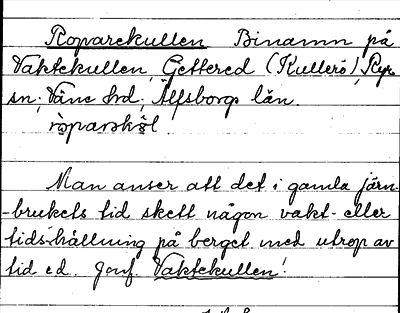 Roparekullen Binamn på
Vaktekullen, Gettered (Kullerö), Ryr
sn; Väne hrd, Älfsborgs län.
Man anser att det i gamla järn-
-brukets tid skett någon vakt- eller
tids-hållning på berget med utrop av
tid e.d. Jmf. Vaktekullen!